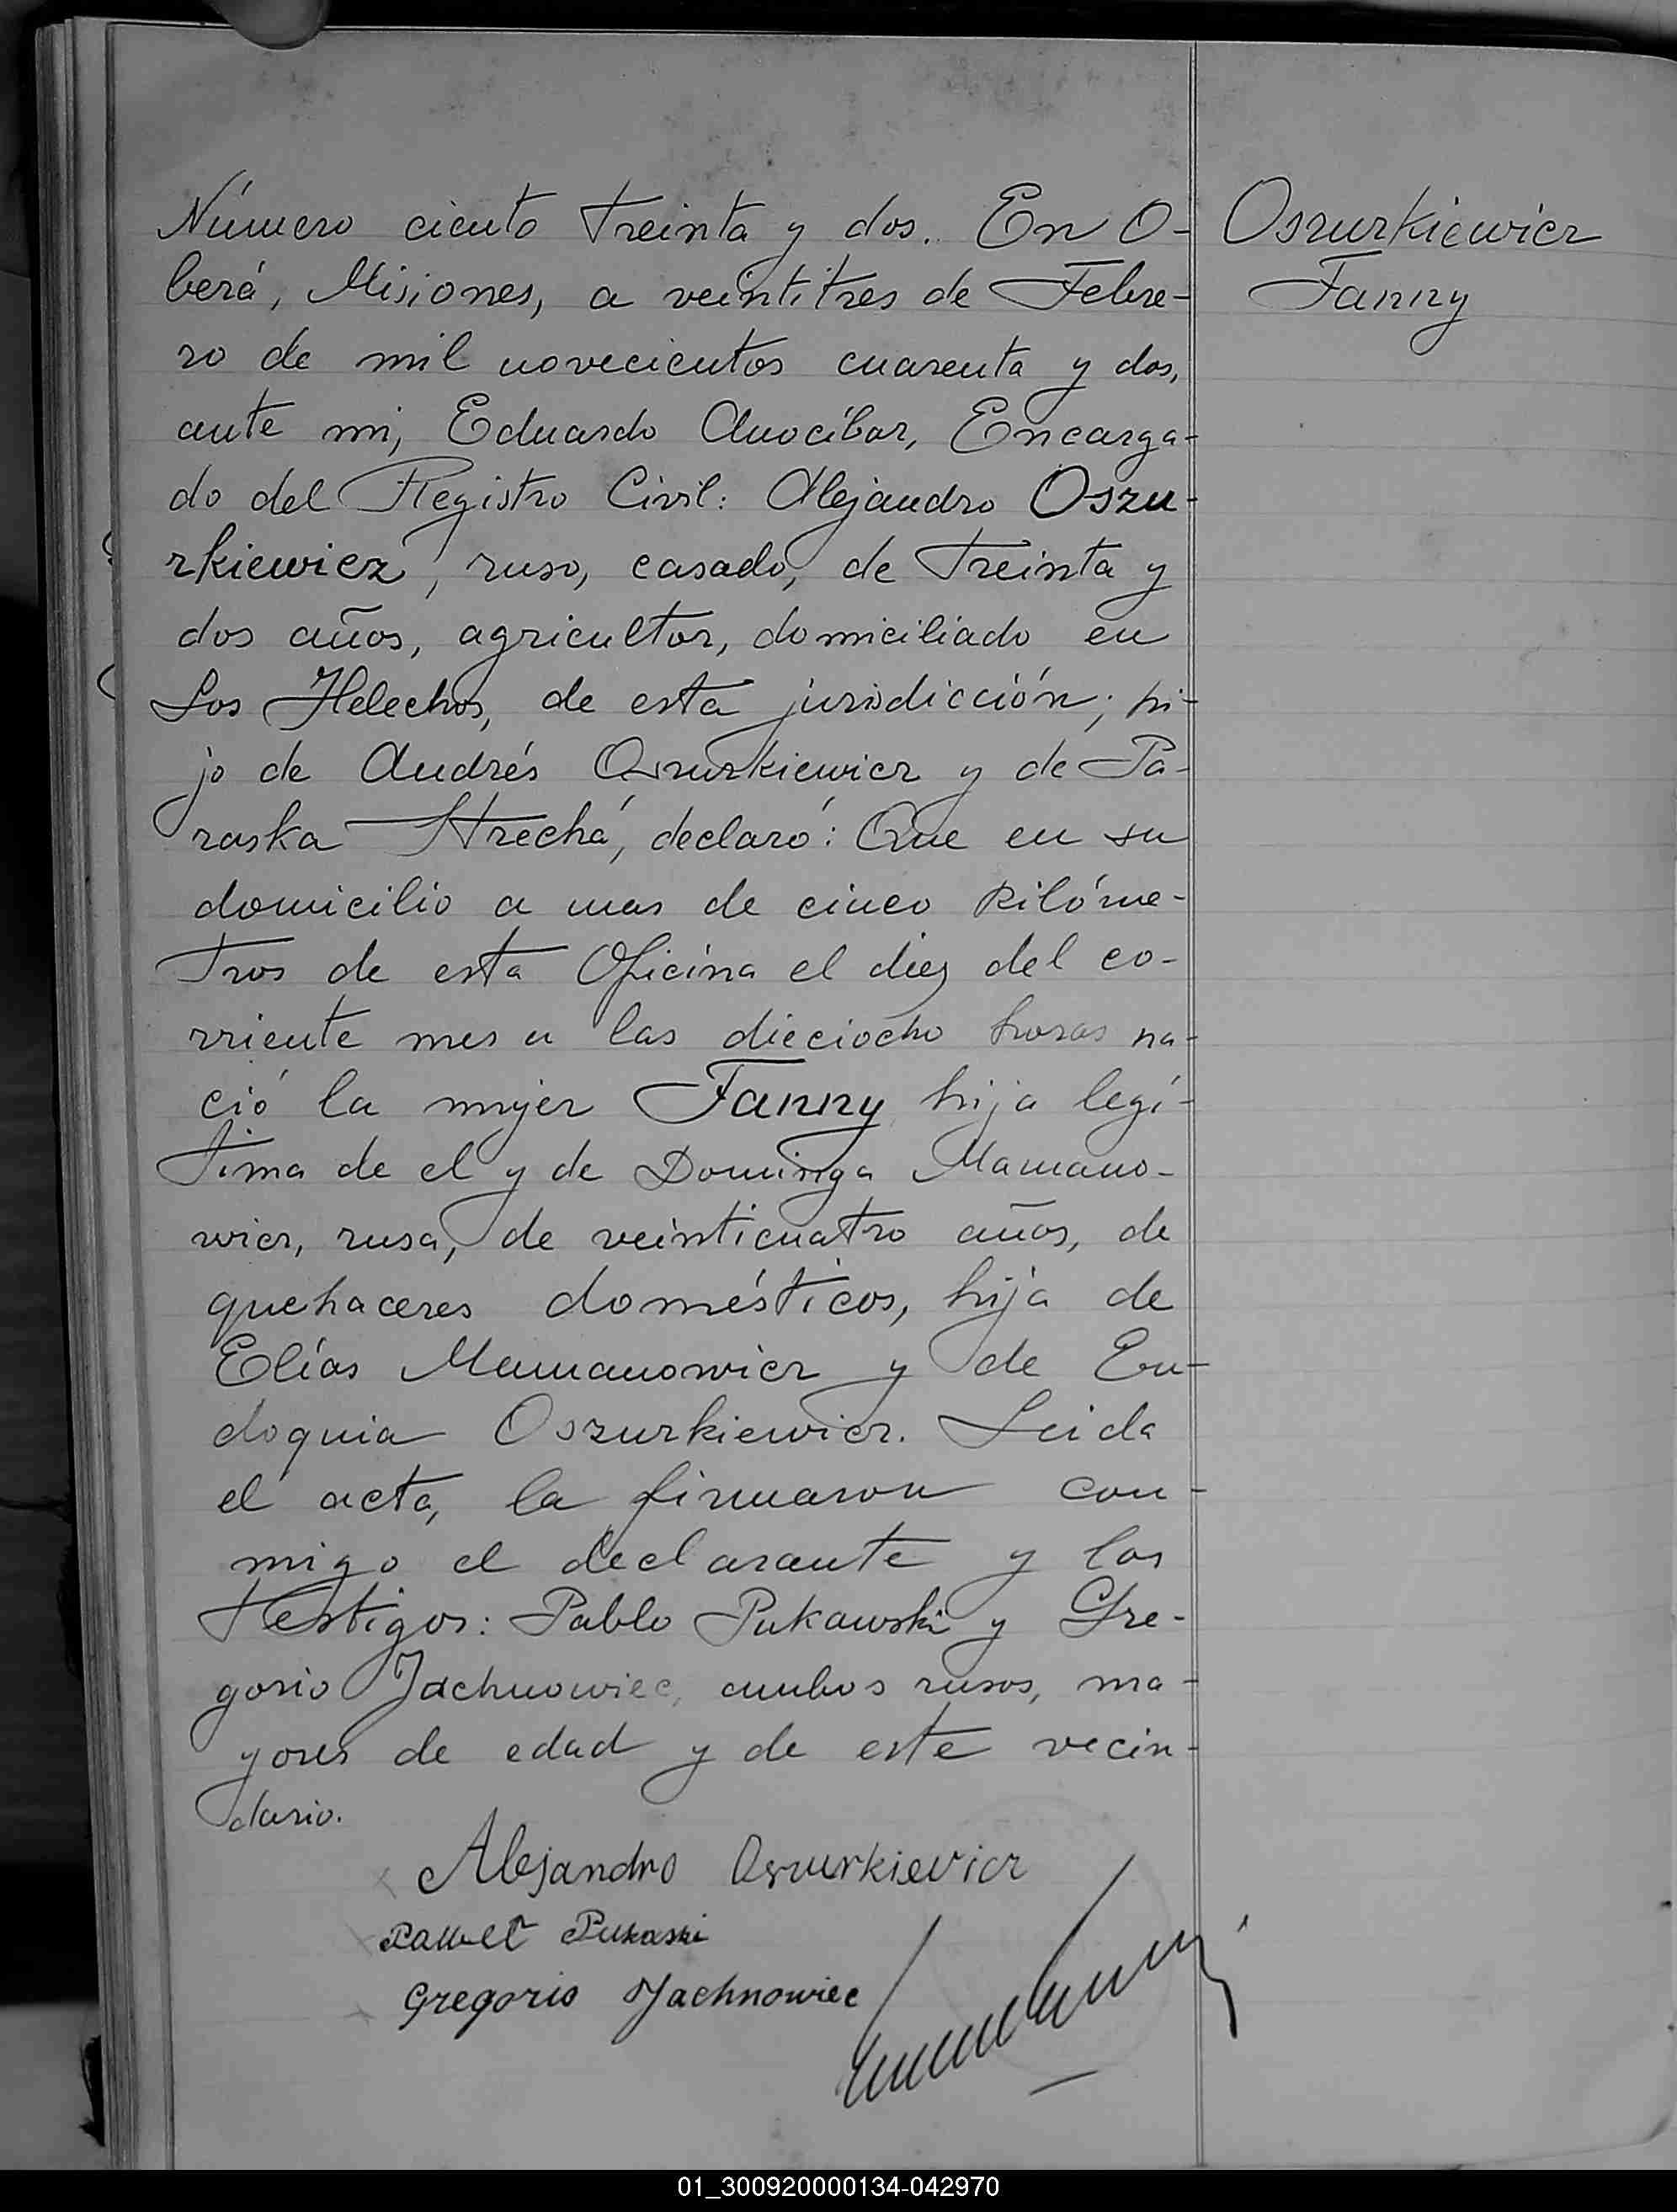 Número ciento treinta y dos. En O-
berá, Misiones, a veintitres de Febre-
ro de mil novecientos cuarenta y dos,
ante mi, Eduardo Anocíbar, Encarga-
do del Registro Civil: Alejandro Oszu-
rkiewicz, ruso, casado, de treinta y
dos años, agricultor, domiciliado en
Los Helechos, de esta jurisdicción; hi-
jo de Andrés Oszurkiewicz y de Pa-
raska Strechá, declaró: Que en su
domicilio a mas de cinco kilóme-
tros de esta Oficina el diez del co-
rriente mes a las dieciocho horas na-
ció la mujer Fanny hija legí-
tima de el y de Dominga Mamano-
wicz, rusa, de veinticuatro años, de
quehaceres domésticos, hija de
Elías Mamanowicz y de Eu-
doquia Oszurkiewicz. Leida
el acta, la firmaron con-
migo el declarante y los
testigos: Pablo Pukawski y Gre-
gorio Jachnowiec, ambos rusos, ma-
yores de edad y de este vecin-
dario.
Oszurkiewicz
Fanny
Alejandro Oszurkievicz
Pukaski
Gregorio Jachnowiec
01_300920000134-042970